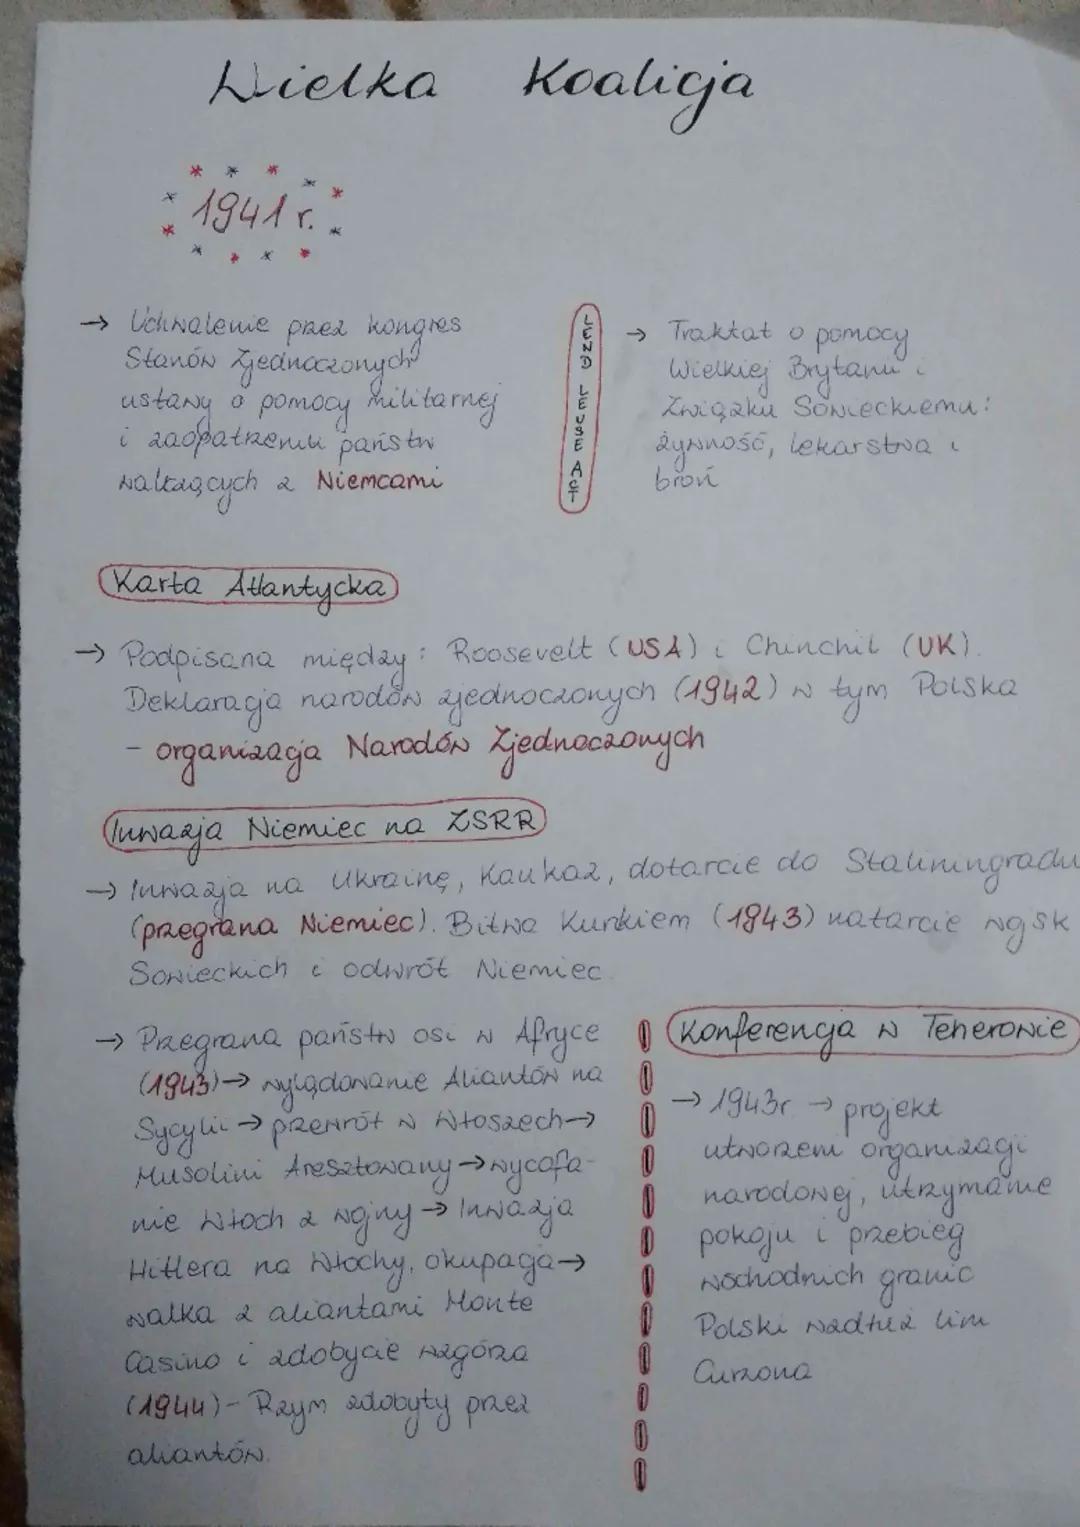 Wielka Koalicja
1941 r.
→ Uchwalenie przez kongres
Stanów Zjednoczonych
ustawy o pomocy militarnej
i zaopatrzeniu państw
walczących z Niemcami
LEND LEUSE ACT
→ Traktat o pomocy
Wielkiej Brytanii i
Związku Sowieckiemu:
żywność, lekarstwa i
broń
Karta Atlantycka
→ Podpisana między: Roosevelt (USA) i Churchil (UK).
Deklaracja narodów zjednoczonych (1942) w tym Polska
- organizacja Narodów Zjednoczonych
Inwazja Niemiec na ZSRR
→ Inwazja na Ukrainę, Kaukaz, dotarcie do Staliningradu
(przegrana Niemiec). Bitwa Kurskiem (1943) natarcie wojsk
Sowieckich i odwrót Niemiec.
→ Przegrana państw osi w Afryce
(1943)→ wylądowanie Aliantów na
Sycylii → przewrót w Włoszech→
Musolini Aresztowany→wycofa-
nie Włoch z wojny → Inwazja
Hitlera na Włochy, okupacja→
walka z aliantami Monte
Casino i zdobycie wzgórza
(1944)- Rzym zdobyty przez
aliantów.
Konferencja w Teheranie
→ 1943r → projekt
utworzeni organizacji
narodowej, utrzymanie
pokoju i przebieg
wschodnich granic
Polski wzdłuż linii
Curzona